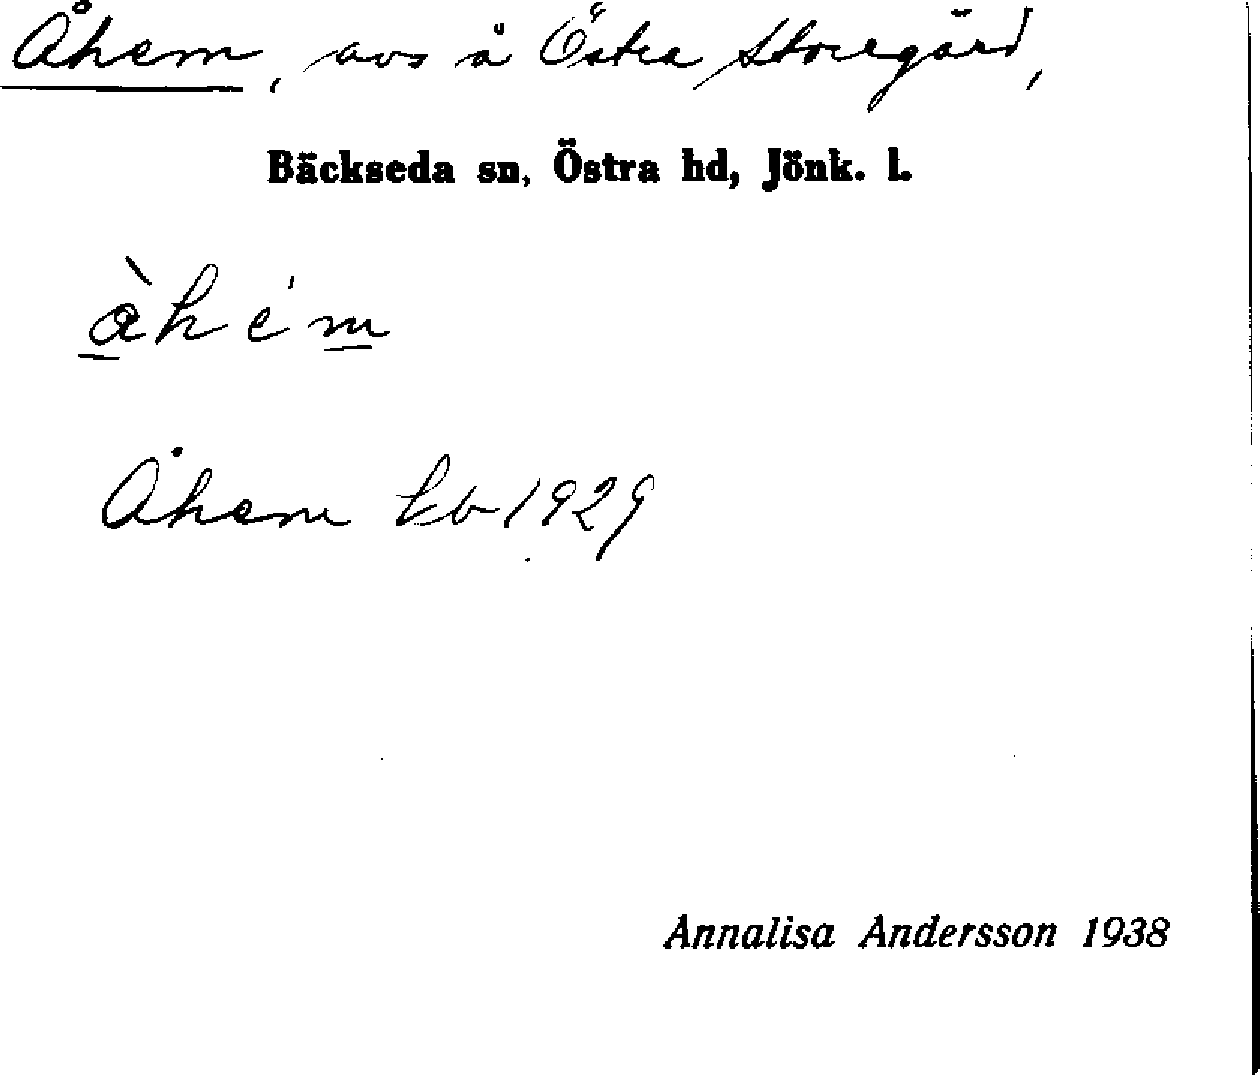 Åhem, avs å Östra Storegård,
Bäckseda sn, Östra hd, Jönk. l.
åhem
Åhem kb 1929
Annalisa Andersson 1938